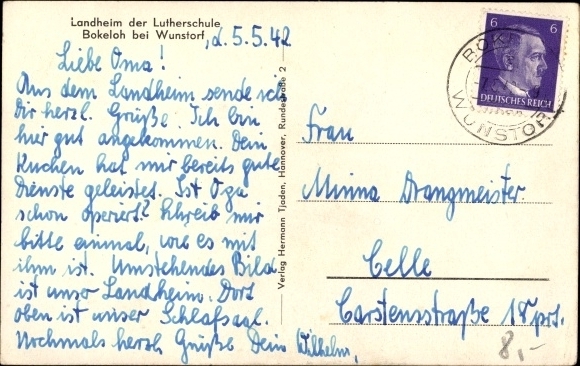 Landheim der Lutherschule
Bokeloh bei Wunstorf, d. 5.5.42
Liebe Oma!
Aus dem Landheim sende ich
Dir herzl. Grüße. Ich bin
hier gut angekommen. Dein
Kuchen hat mir bereits gute
Dienste geleistet. Ist Opa
schon operiert? Schreib mir
bitte einmal, wie es mit
ihm ist. Umstehendes Bild
ist unser Landheim. Dort
oben ist unser Schlafsaal.
Nochmals herzl Grüße Dein Wilhelm.
Verlag Hermann Tjaden, Hannover, Rundestraße 2
6 6
DEUTSCHES REICH
WUNSTORF
Frau
Minna Drangmeister
Celle
Carstensstraße 18 prt.
8,-